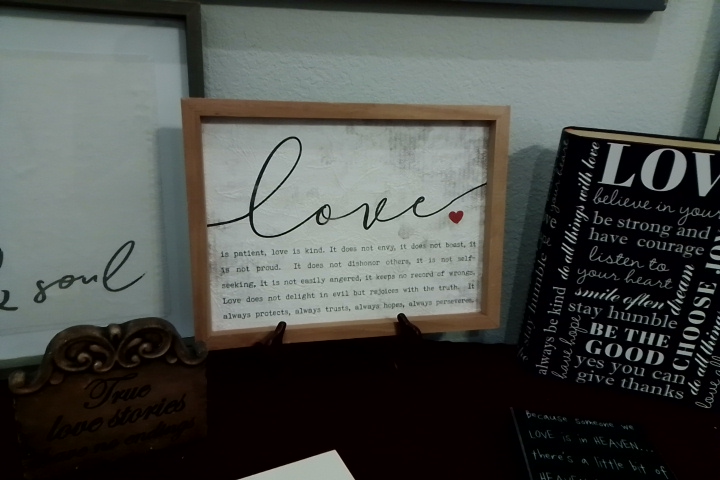 & soul
love
is patient, love is kind. It does not envy, it does not boast, it
is not proud. It does not dishonor others, it is not self-
seeking, it is not easily angered, it keeps no record of wrongs.
Love does not delight in evil but rejoices with the truth. It
always protects, always trusts, always hopes, always perseveres.
True
love stories
have no endings
LOV
believe in your
be strong and
have courage
listen to
your heart
smile often
stay humble
BE THE
GOOD
yes you can
give thanks
do all things with love
always be kind
have hope
dream
CHOOSE JO
do all things
because someone we
LOVE is in HEAVEN...
there's a little bit of
HEAVEN